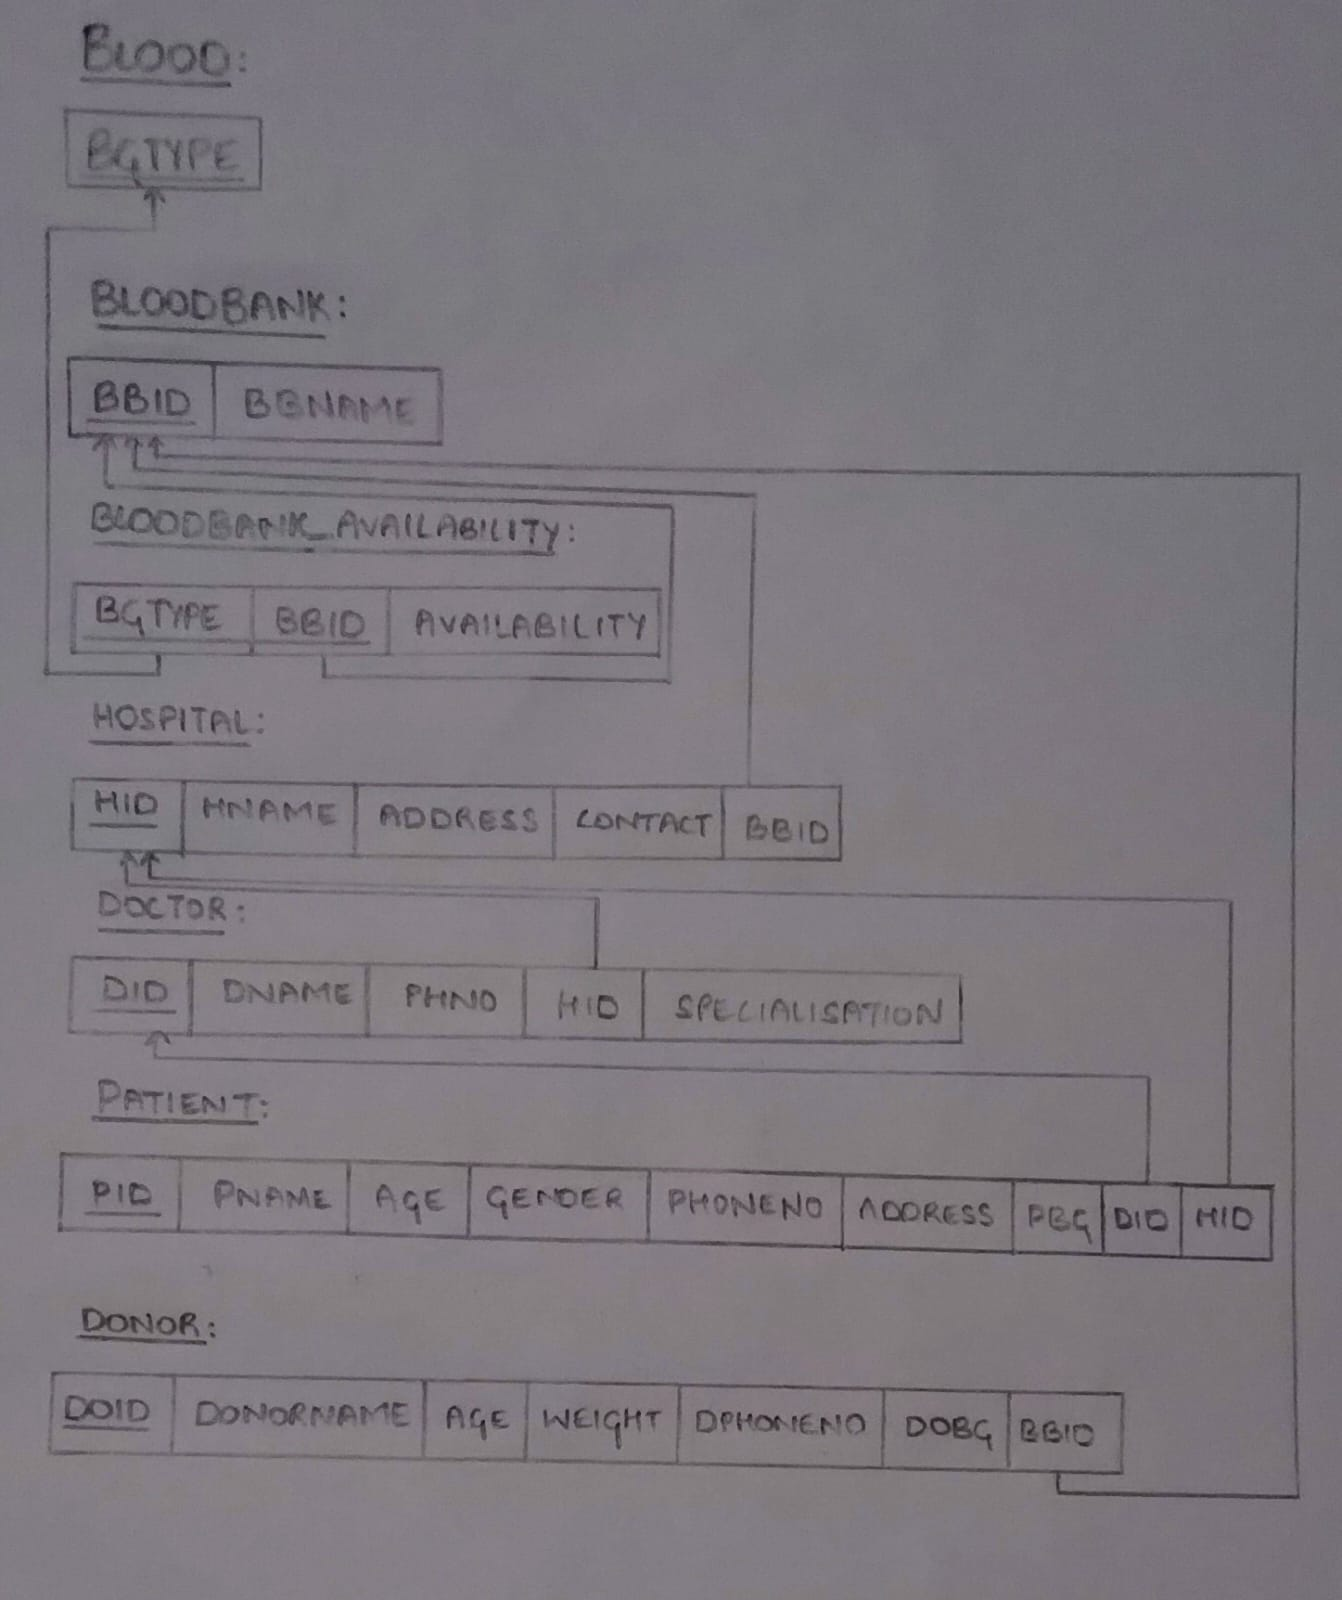 BLOOD:
BGTYPE
BLOODBANK:
BBID BBNAME
BLOODBANK_AVAILABILITY:
BGTYPE BBID AVAILABILITY
HOSPITAL:
HID HNAME ADDRESS CONTACT BBID
DOCTOR:
DID DNAME PHNO HID SPECIALISATION
PATIENT:
PID PNAME AGE GENDER PHONENO ADDRESS PBG DID HID
DONOR:
DOID DONORNAME AGE WEIGHT DPHONENO DOBG BBID